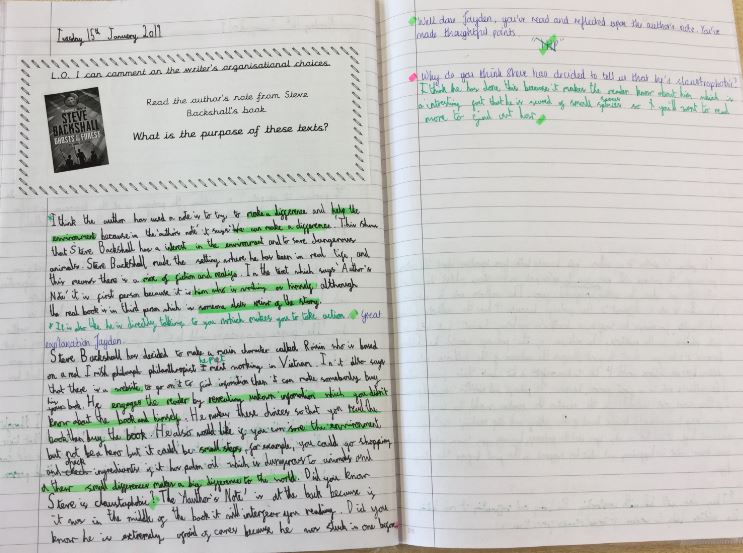 Tuesday 15th January 2019
L.O. I can comment on the writer's organisational choices.
Read the author's note from Steve
Backshall's book
What is the purpose of these texts?
STEVE
BACKSHALL
GHOSTS OF THE FOREST
I think the author has used a note is to try to make a difference and help the
environment because in the 'author's note' it says 'We can make a difference'. This shows
that Steve Backshall has a interest in the environment and to save dangerous
animals. Steve Backshall made the setting where he has been in real life and
this means there is a mix of fiction and reality. In the text which says 'Author's
Note' it is first person because it is him who is writing so honesly although
the real book is in third person which is someone elses point of the story.
* It is also like he is directly talking to you which makes you to take action. Great
explanation Jayden.
Steve Backshall has decided to make a main character called Ronin who is based
on a real Irish philosoph philanthropist I he met working in Vietnam. In it also says
that there is a website, to go on it to find information then it can make somebody buy
his book. He engages the reader by revealing unknown information which you didn't
know about the book and himself. He makes these choices so that you read the
book then buy the book. He also would like if you can save the environment
but not be a hero but it could be small steps, for example, you could go shopping
and check ingredients if it has palm oil which is dangerous to animals and
a these small differences makes a big difference to the world. Did you know
Steve is claustrophobic? The 'Author's Note' is at the back because if
it was in the middle of the book it will interfear you reading. Did you
know he is extremely afraid of caves because he was stuck in one before.
Well done Jayden, you've read and reflected upon the author's note. You've
made thoughtful points.
Why do you think Steve has decided to tell us that he's claustrophobic?
I think he has done this because it makes the reader know about him which is
a interesting fact that he is scared of small spaces so you'll want to read
more to find out how.